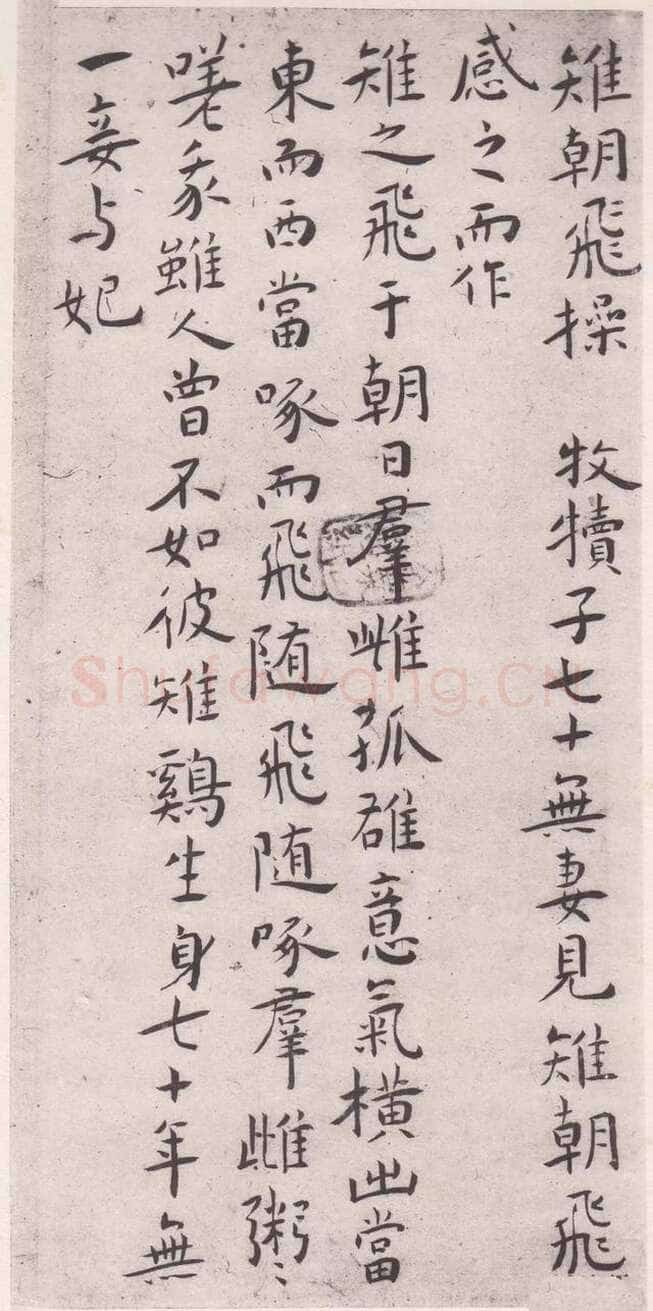 雉朝飛操 牧犢子七十無妻見雉朝飛
感之而作
雉之飛于朝日羣雌孤雄意氣横出當
東而西當啄而飛随飛随啄羣雌粥〻
嗟我雖人曾不如彼雉鷄生身七十年無
一妾与妃
Shufawang.CN